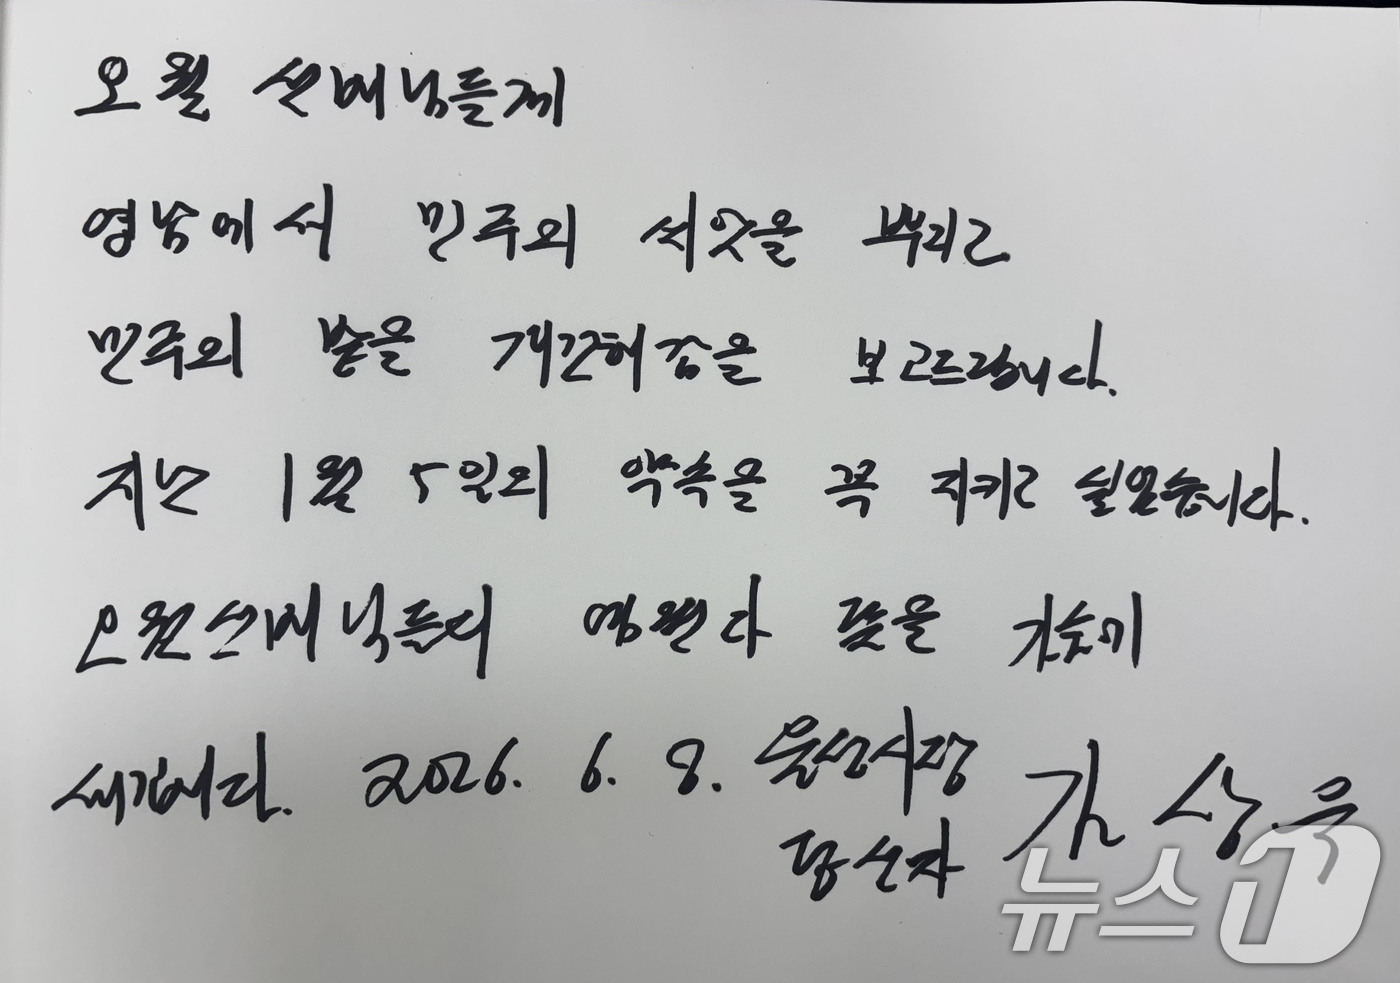 오월 선배님들께
영남에서 민주의 씨앗을 뿌리고
민주의 밭을 개간허감을 보고드립니다.
지난 1월 5일의 약속을 꼭 지키고 싶었습니다.
오월선배님들의 염원과 뜻을 가슴에
새깁니다. 2026. 6. 8. 울산시장
당선자 김상욱
뉴스1